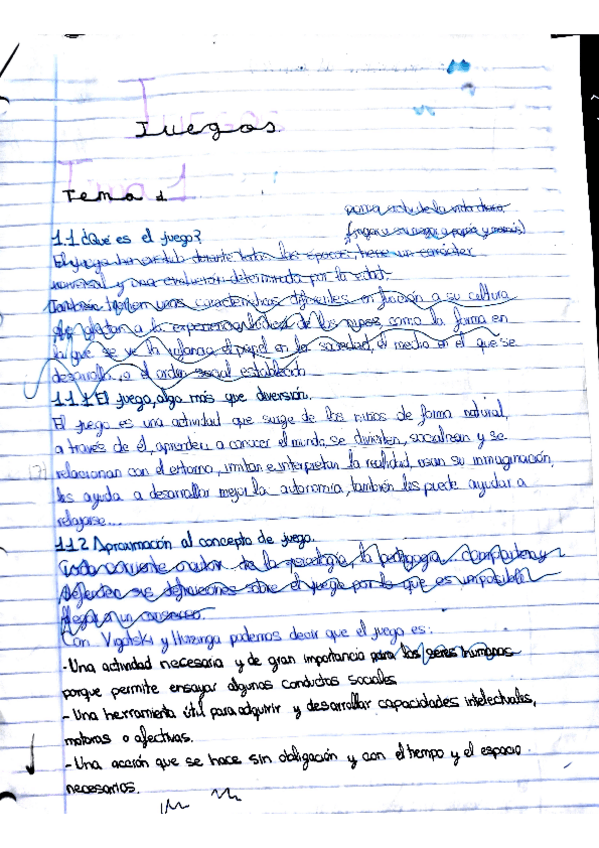 Juegos
Tema 1
para salir de la vida diaria
(jugar a ser mayor, a papás y mamás)
1.1 ¿Qué es el juego?
El juego ha existido durante todas las épocas, tiene un carácter
universal y una evolución determinada por la edad.
También tienen unas características diferentes en función a su cultura
que afectan a la experiencia de los niños, como la forma en
la que se ve la infancia, el papel en la sociedad, el medio en el que se
desarrolla, o el orden social establecido.
1.1.1 El juego, algo más que diversión.
El juego es una actividad que surge de los niños de forma natural,
a través de él, aprenden a conocer el mundo, se divierten, socializan y se
relacionan con el entorno, imitan e interpretan la realidad, usan su inmaginación,
les ayuda a desarrollar mejor la autonomía, también les puede ayudar a
relajarse...
1.1.2 Aproximación al concepto de juego.
Cada corriente o autor de la psicología, la pedagogía... comparten y
defienden sus definiciones sobre el juego por lo que es imposible
llegar a un consenso.
Con Vigotski y Huizinga podemos decir que el juego es:
- Una actividad necesaria y de gran importancia para los seres humanos
porque permite ensayar algunas conductas sociales
- Una herramienta útil para adquirir y desarrollar capacidades intelectuales,
motoras o afectivas.
- Una acción que se hace sin obligación y con el tiempo y el espacio
necesarios.